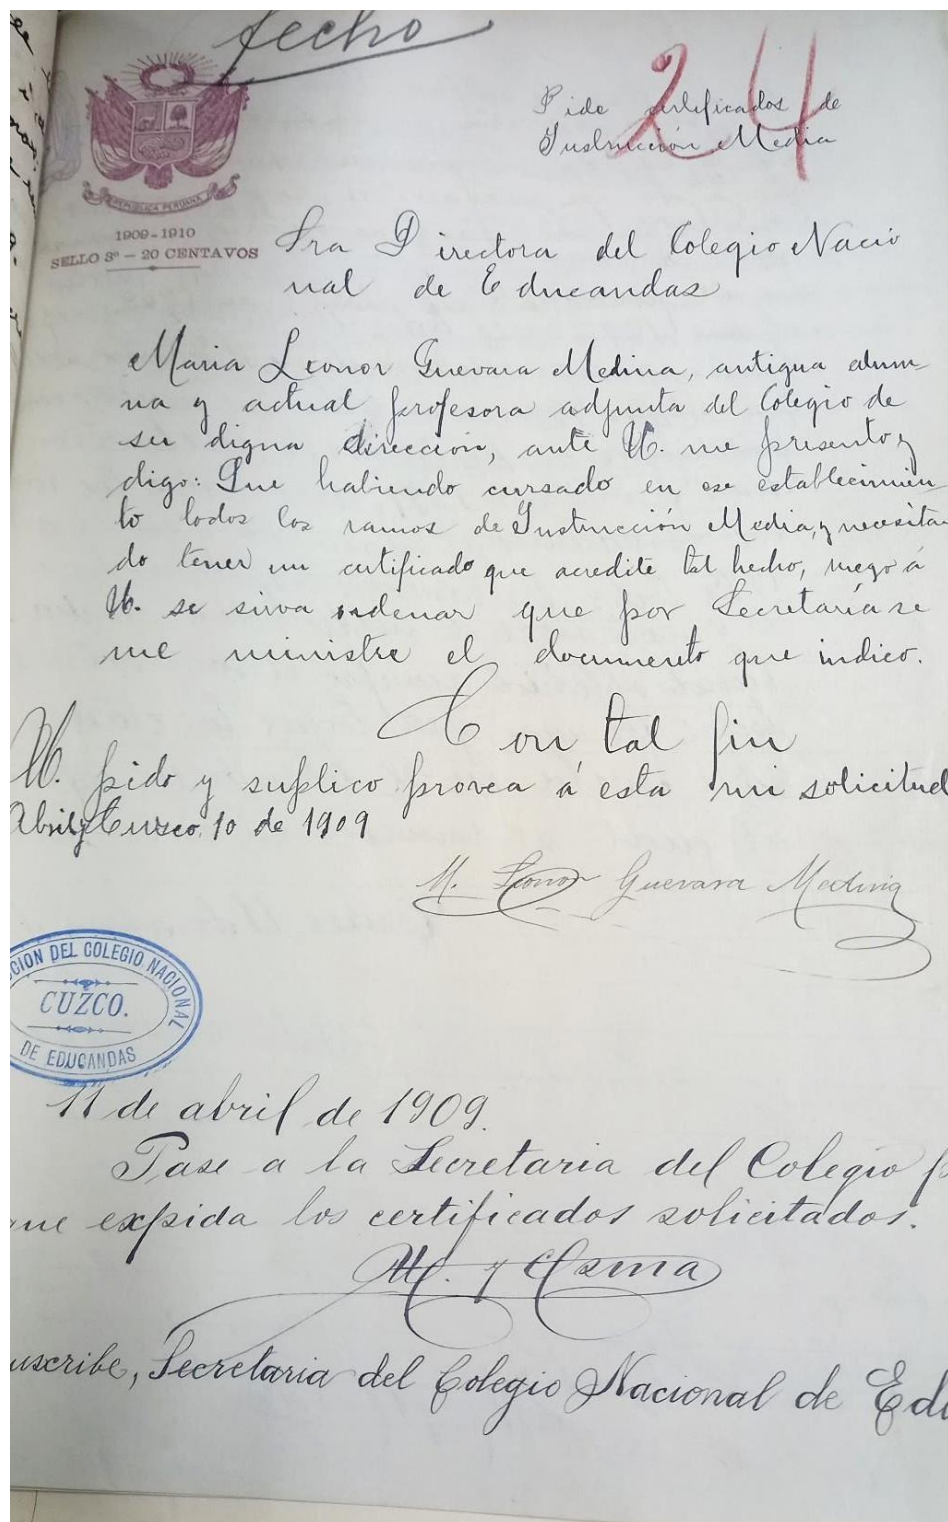 fecho
24
Pide certificados de
Instrucción Media
REPUBLICA PERUANA
1909-1910
SELLO 3º - 20 CENTAVOS
Sra Directora del Colegio Nacio
nal de Educandas
Maria Leonor Guevara Medina, antigua alum-
na y actual profesora adjunta del Colegio de
su digna dirección, ante U. me presento y
digo: Que habiendo cursado en ese establecimien-
to todos los ramos de Instrucción Media, y necesitan
do tener un certificado que acredite tal hecho, ruego á
U. se sirva ordenar que por Secretaría se
me ministre el documento que indico.
Con tal fin
U. pido y suplico provea á esta mi solicitud
Cuzco, 10 de 1909
M. Leonor Guevara Medina
CION DEL COLEGIO NACIONAL
CUZCO.
DE EDUCANDAS
11 de abril de 1909.
Pase a la Secretaria del Colegio p
que expida los certificados solicitados.
uscribe, Secretaria del Colegio Nacional de Edu